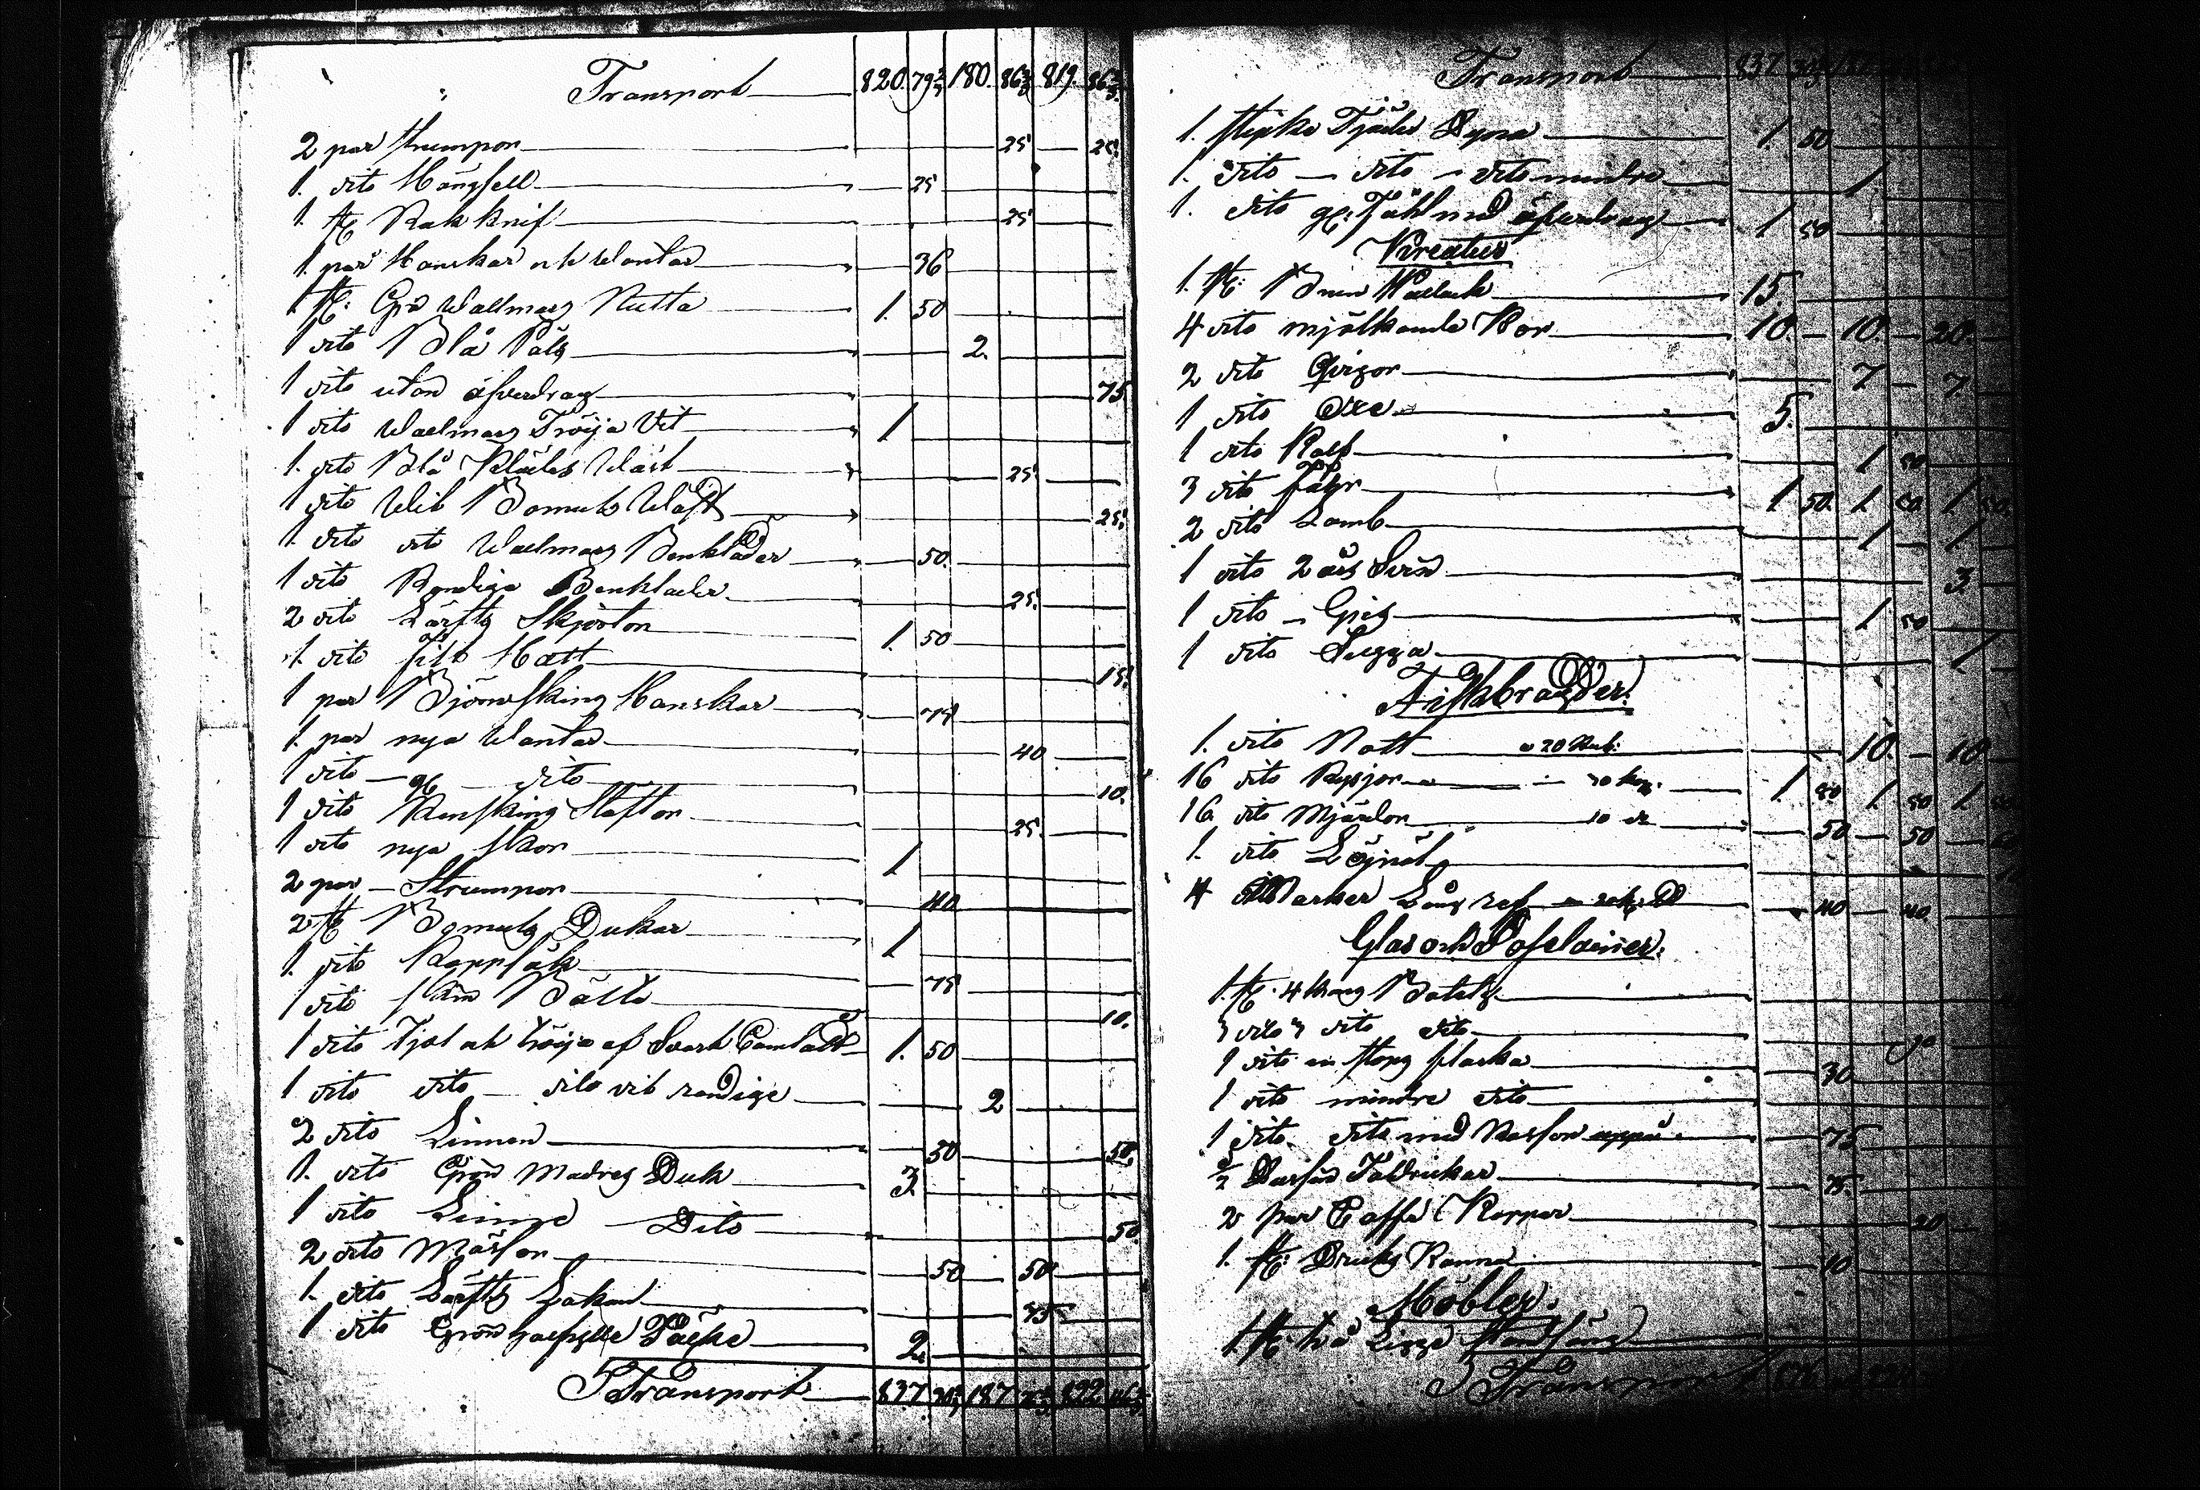 Transport 820. 79 2/7 180. 86 2/3 819. 86 2/3
2 par strumpor 25 25
1. dito Hängsell 25
1. st Rakknif 25
1. par Hanskar och Wantar 36
1 st: Grå Wallmars Rutta 1. 50
1 dito Blå Päls 2.
1 dito utan öfverdrag 75
1 dito Wallmars Tröija Vit 1
1. dito Blå Klädes Wäst 25
1 dito Wit Bomuls Wäst 25
1. dito dito Wallmars Benkläder 50.
1 dito Randiga Benkläder 25.
2 dito Lärfts Skjortor 1. 50
1. dito filt Hatt 15.
1 par Björnskins Hanskar 75
1. par nya Wantar 40
1 dito gl dito 10.
1 dito Renskins Stöflor 25.
1 dito nya skor 1
2 par Strumpor 40
2 st Bomuls Dukar 1
1. dito Kappsäk 75
1 dito skin Bälte 10.
1 dito Kjol och tröija af Svart Camlått 1. 50
1 dito dito dito vit randige 2
2 dito Linnen 50 50.
1. dito Grön Madres Duk 3.
1 dito Linne Dito 50.
2 dito Mössor 50 50
1. dito Lärfts Lakan 75
1 dito Grön halfylle Täcke 2.
Transport 837 187 822
Transport 837
1. stycke Fjäder Dyna 1. 50
1. Dito dito dito mindre 1
1. dito gl: Fähl med öfverdrag 1 50
Kreatur
1. st: Brun Wallack 15.
4 dito mjölkande Kor 10. 10. 20.
2 dito Qvigor 7 7.
1 dito Oxe 5.
1 dito Kalf 1 50
3 dito fåhr 1 50. 1 50 1 50.
2 dito Lamb 1 1
1 dito 2 års Svin 3
1 dito Gris 1 50
1 dito Sugga 1
Fiskbragder.
1. dito Nott a 20 Rub: 10. 10
16 dito Ryssjor 30 kop. 1. 80. 1 80 1
16 dito Mjärdor 10 d 50 50
1. dito Löjnät
4 Marker Lång ref 40 40
Glas och Posclainer.
1. st. 4 kang Botelj
3 dito 3 dito dito
1 dito en stop flaska 30
1 dito mindre dito
1 dito. dito med Karfvor uppå 75
1/2 Dussin Taldrickar 75.
2 par Caffe Koppar 20
1. st: Dricks Kanna 10
Möbler.
1. st. två
Transport